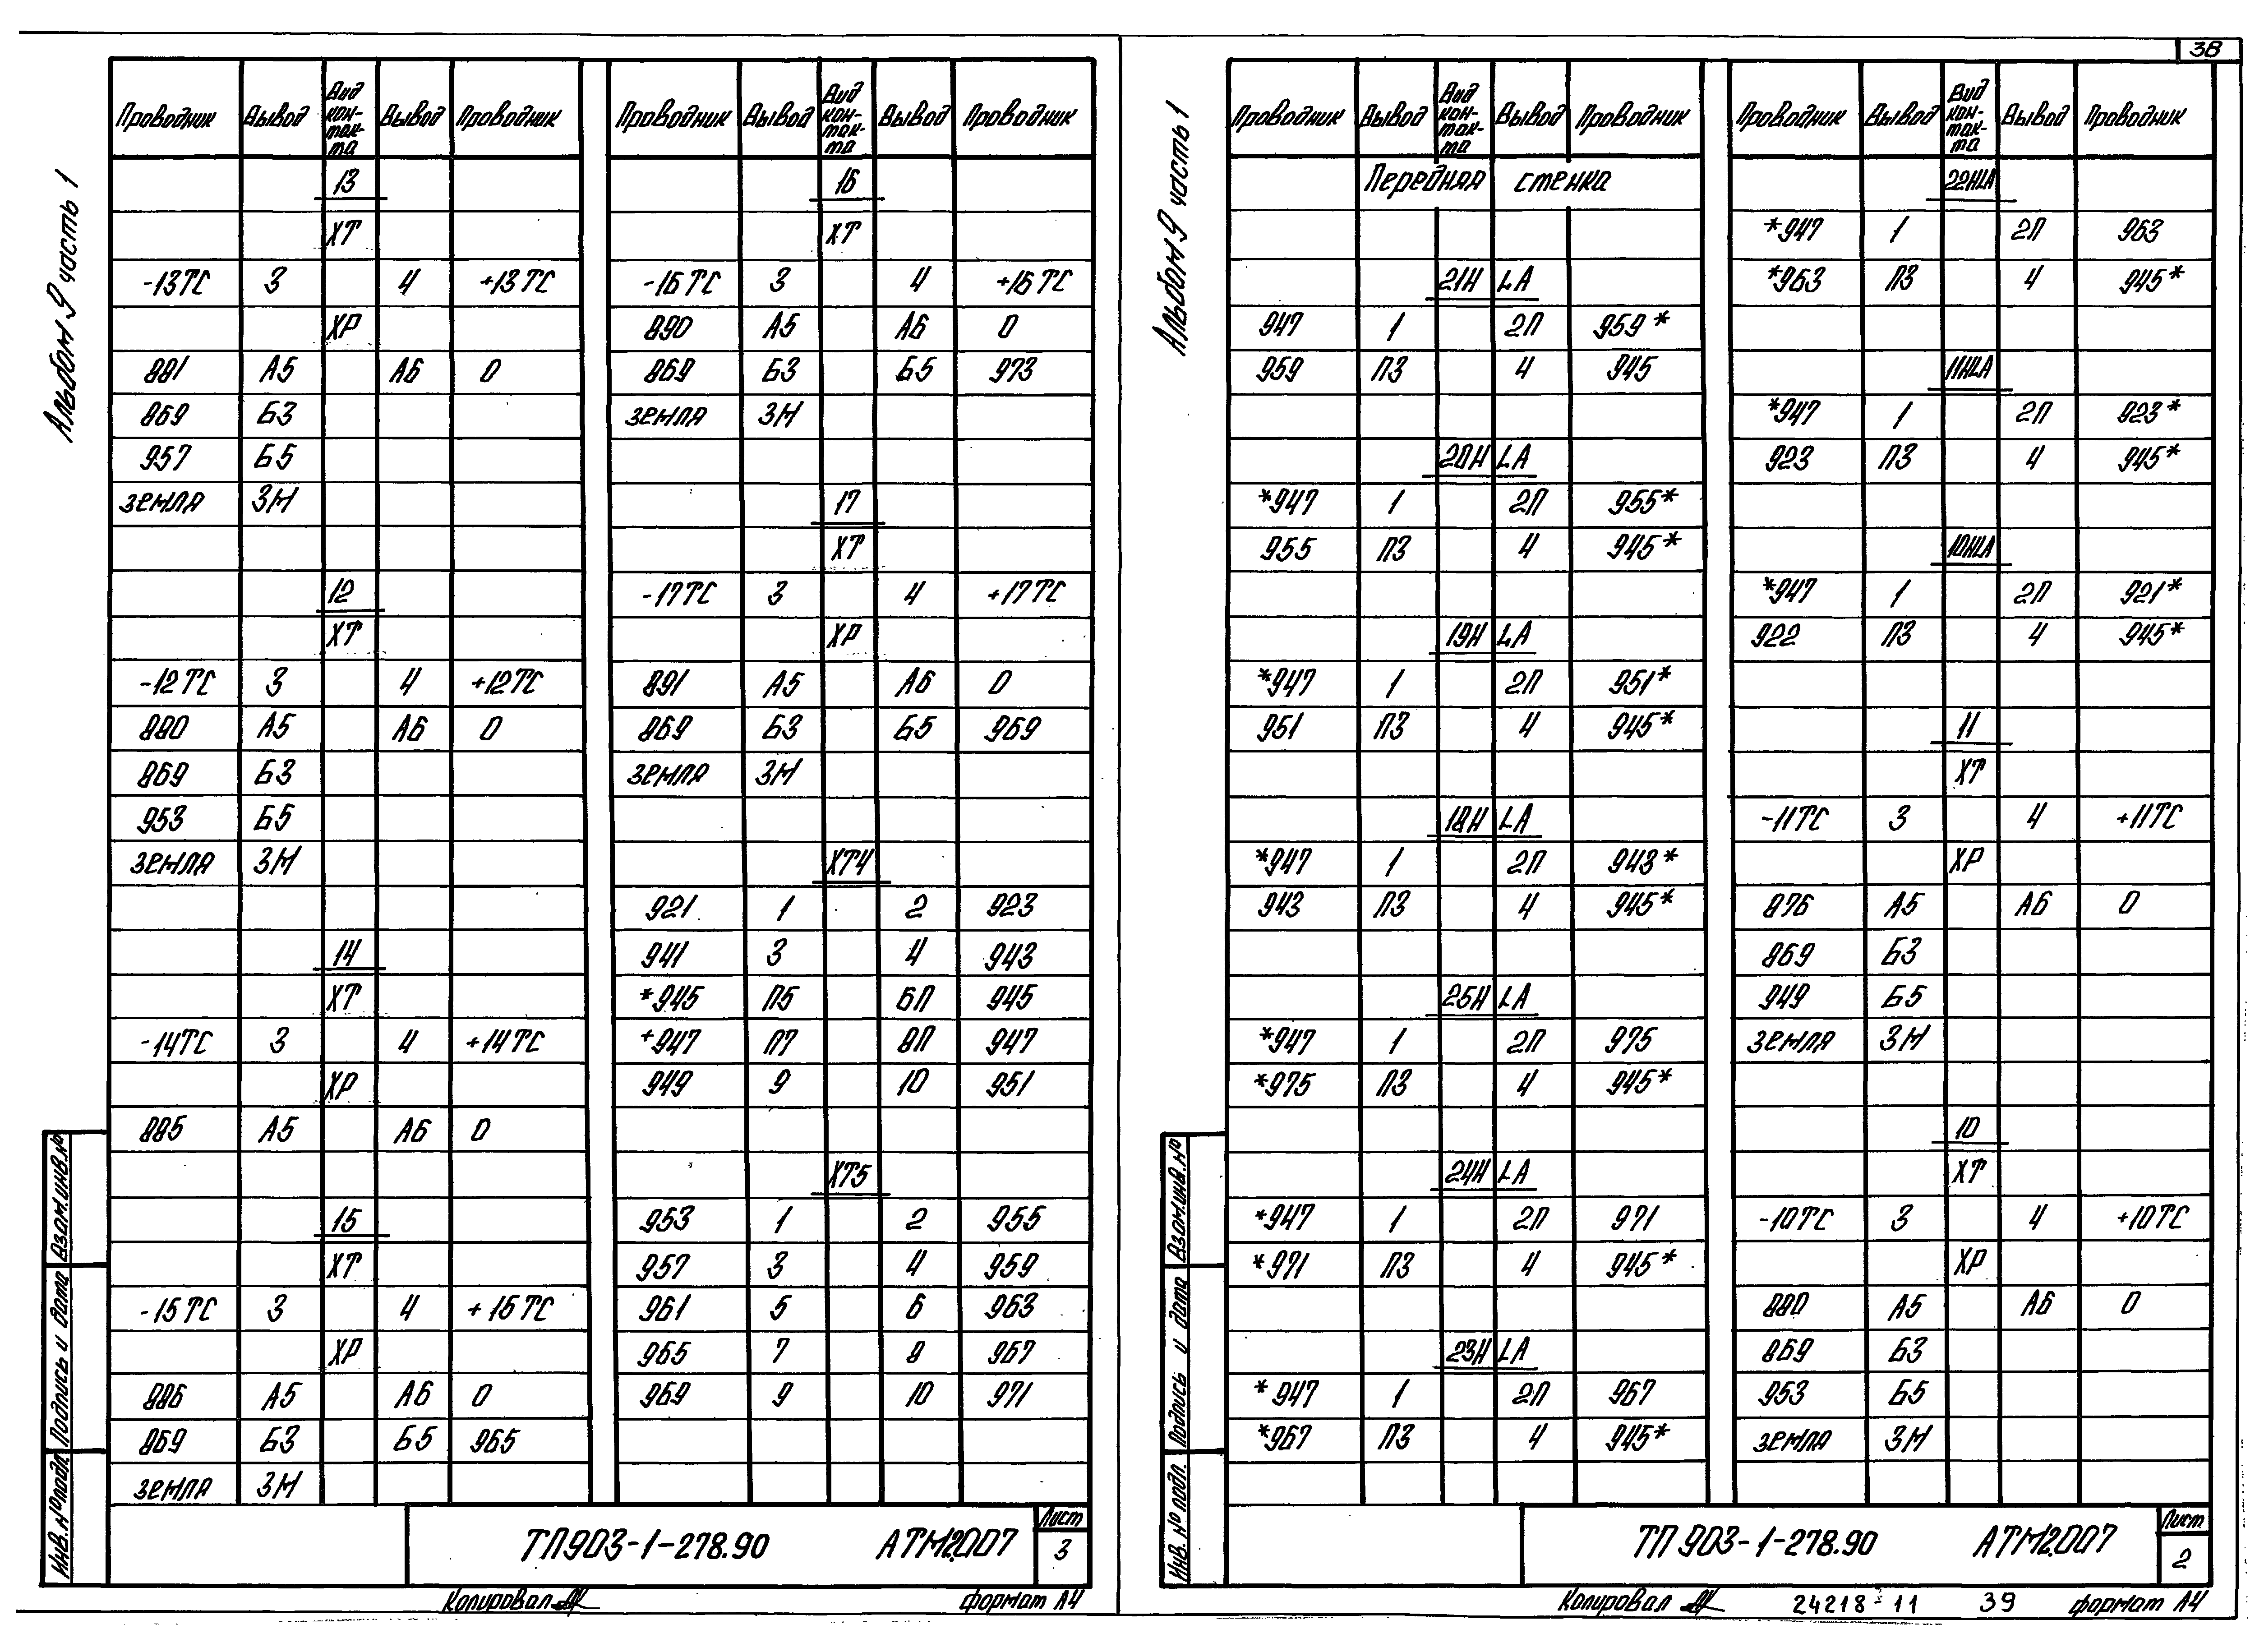 38
Альбом 9 часть 1
Проводник Вывод Вид кон-так-та Вывод Проводник
13
ХТ
-13ТС 3 4 +13ТС
ХР
881 А5 А6 0
869 Б3
957 Б5
земля ЗМ
12
ХТ
-12ТС 3 4 +12ТС
880 А5 А6 0
869 Б3
953 Б5
земля ЗМ
14
ХТ
-14ТС 3 4 +14ТС
ХР
885 А5 А6 0
15
ХТ
-15ТС 3 4 +15ТС
ХР
886 А5 А6 0
869 Б3 Б5 965
земля ЗМ
Проводник Вывод Вид кон-так-та Вывод Проводник
16
ХТ
-16ТС 3 4 +16ТС
890 А5 А6 0
869 Б3 Б5 973
земля ЗМ
17
ХТ
-17ТС 3 4 +17ТС
ХР
891 А5 А6 0
869 Б3 Б5 969
земля ЗМ
ХТ4
921 1 2 923
941 3 4 943
*945 П5 6П 945
+947 П7 8П 947
949 9 10 951
ХТ5
953 1 2 955
957 3 4 959
961 5 6 963
965 7 8 967
969 9 10 971
Взам.инв.№
Подпись и дата
Инв.№подл.
ТП903-1-278.90 АТМ2.007
Лист
3
Копировал
формат А4
Альбом 9 часть 1
Проводник Вывод Вид кон-так-та Вывод Проводник
Передняя стенка
21HLA
947 1 2П 959*
959 П3 4 945
20HLA
*947 1 2П 955*
955 П3 4 945*
19HLA
*947 1 2П 951*
951 П3 4 945*
18HLA
*947 1 2П 943*
943 П3 4 945*
25HLA
*947 1 2П 975
*975 П3 4 945*
24HLA
*947 1 2П 971
*971 П3 4 945*
23HLA
*947 1 2П 967
*967 П3 4 945*
Проводник Вывод Вид кон-так-та Вывод Проводник
22HLA
*947 1 2П 963
*963 П3 4 945*
11HLA
*947 1 2П 923*
923 П3 4 945*
10HLA
*947 1 2П 921*
922 П3 4 945*
11
ХТ
-11ТС 3 4 +11ТС
ХР
876 А5 А6 0
869 Б3
949 Б5
земля ЗМ
10
ХТ
-10ТС 3 4 +10ТС
ХР
880 А5 А6 0
869 Б3
953 Б5
земля ЗМ
Взам.инв.№
Подпись и дата
Инв.№ подл.
ТП 903-1-278.90 АТМ2.007
Лист
2
Копировал
24218-11 39 формат А4